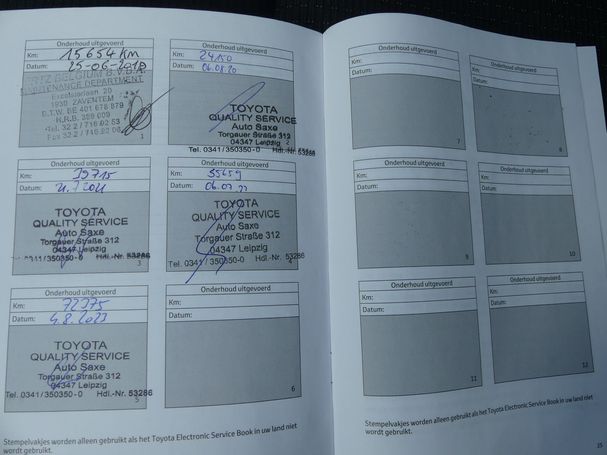 Onderhoud uitgevoerd
Km: 15654 KM
Datum: 25-06-2018
HERTZ BELGIUM B.V.B.A.
MAINTENANCE DEPARTMENT
Excelsiorlaan 20
1930 ZAVENTEM
B.T.W. BE 401 678 879
H.R.B. 389 009
Tel. 32 2 / 716 02 53
Fax 32 2 / 716 02 00
1
Onderhoud uitgevoerd
Km: 24150
Datum: 06.08.20
TOYOTA
QUALITY SERVICE
Auto Saxe
Torgauer Straße 312
04347 Leipzig
Tel. 0341/350350-0 Hdl.-Nr. 53286
2
Onderhoud uitgevoerd
Km: 39715
Datum: 21.7.2021
TOYOTA
QUALITY SERVICE
Auto Saxe
Torgauer Straße 312
04347 Leipzig
0341/350350-0 Hdl.-Nr. 53286
3
Onderhoud uitgevoerd
Km: 55659
Datum: 06.07.22
TOYOTA
QUALITY SERVICE
Auto Saxe
Torgauer Straße 312
04347 Leipzig
Tel. 0341/350350-0 Hdl.-Nr. 53286
4
Onderhoud uitgevoerd
Km: 72375
Datum: 4.8.2023
TOYOTA
QUALITY SERVICE
Auto Saxe
Torgauer Straße 312
04347 Leipzig
Tel. 0341/350350-0 Hdl.-Nr. 53286
5
Onderhoud uitgevoerd
Km:
Datum:
6
Stempelvakjes worden alleen gebruikt als het Toyota Electronic Service Book in uw land niet
wordt gebruikt.
Onderhoud uitgevoerd
Km:
Datum:
7
Onderhoud uitgevoerd
Km:
Datum:
8
Onderhoud uitgevoerd
Km:
Datum:
9
Onderhoud uitgevoerd
Km:
Datum:
10
Onderhoud uitgevoerd
Km:
Datum:
11
Onderhoud uitgevoerd
Km:
Datum:
12
Stempelvakjes worden alleen gebruikt als het Toyota Electronic Service Book in uw land niet
wordt gebruikt.
25